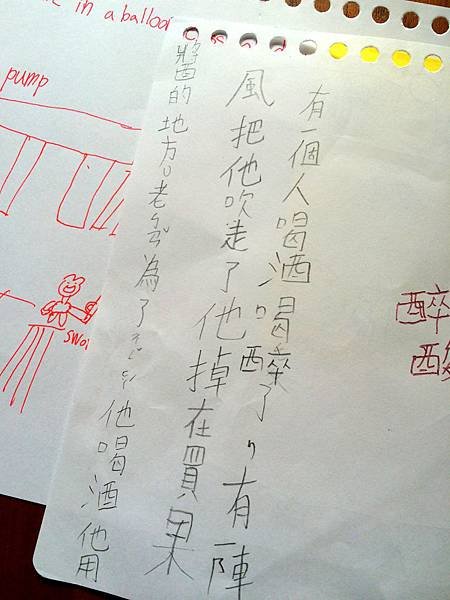 有一個人喝酒喝醉了，有陣
風把他吹走了他掉在買果
醬的地方。老為了他喝酒他用
in a balloo
pump
醉